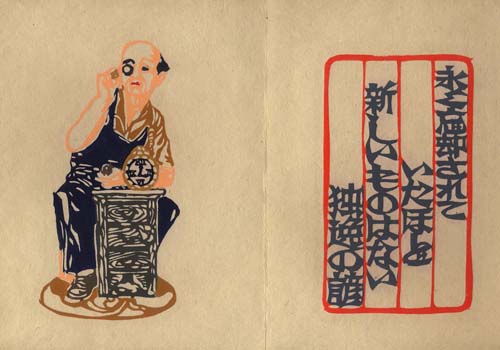 永く忘却されて
いたほど
新しいものはない
独逸の諺